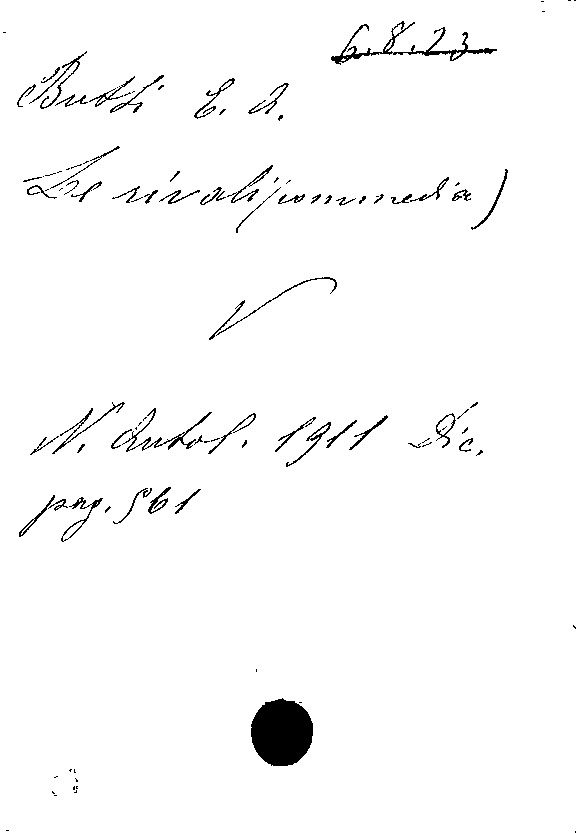 6.8.23
Butti E. A.
Le rivali (commedia)
N. Antol. 1911 Dic.
pag. 561